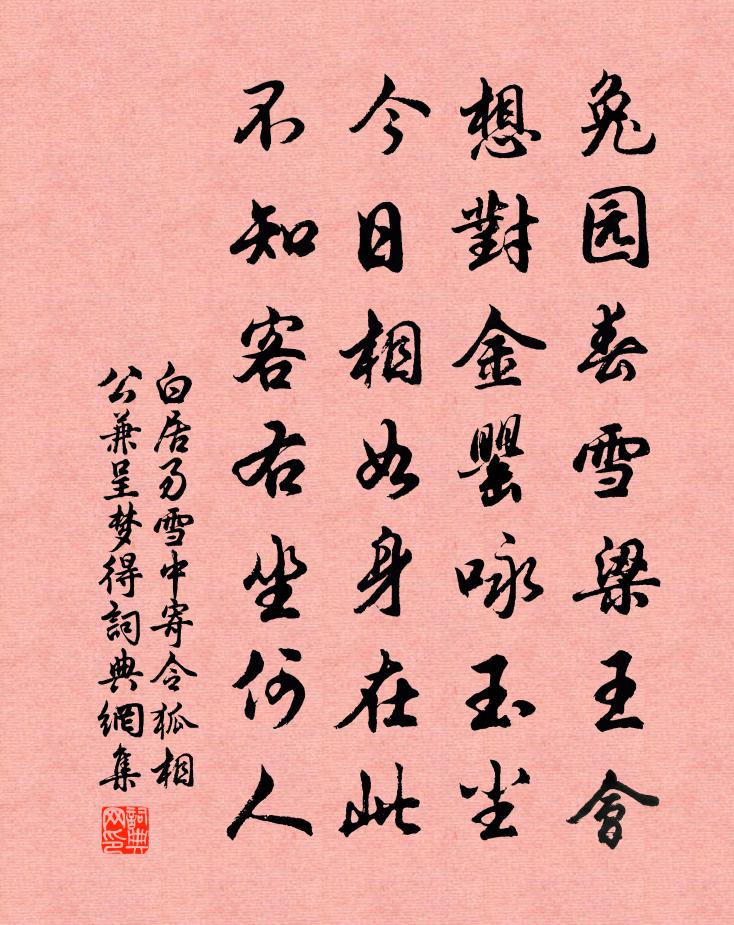 兔园春雪梁王會
想對金罍咏玉尘
今日相如身在此
不知客右坐何人
白居易雪中寄令狐相
公兼呈梦得詞典網集
詞典
网印